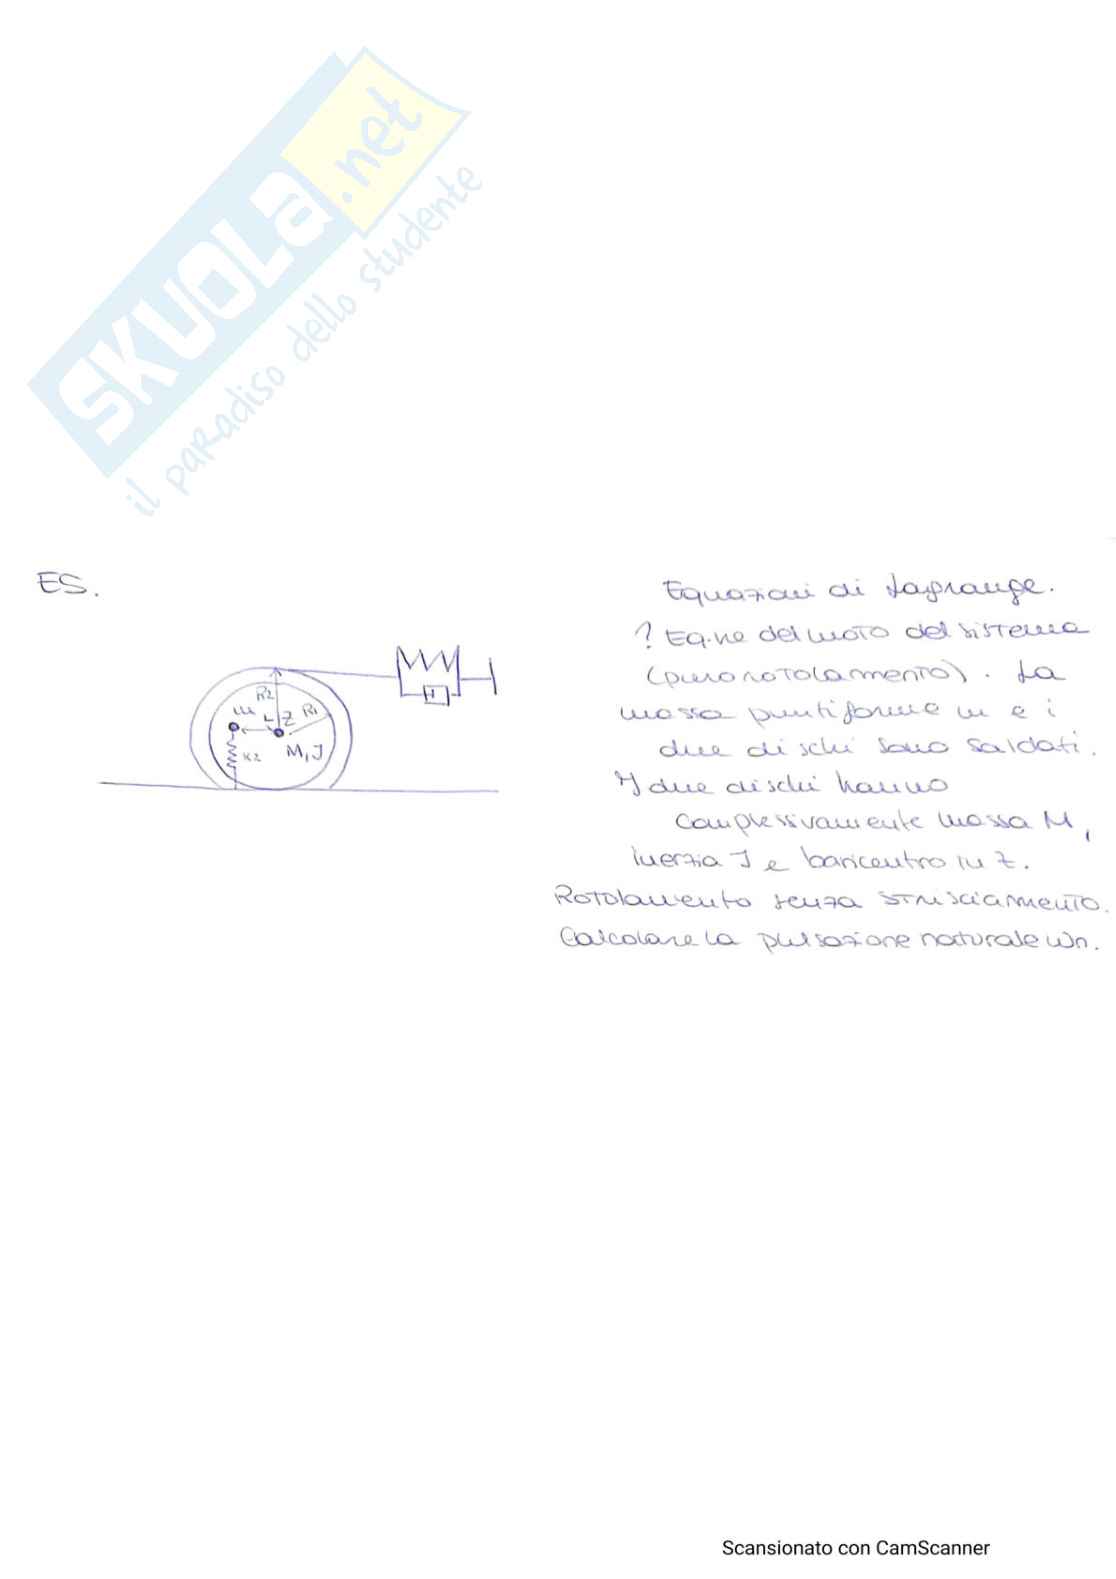 SKUOLA.net
il paradiso dello studente
ES.
Equazioni di Lagrange.
? Eq.ne del moto del sistema
(puro rotolamento). La
massa puntiforme m e i
due dischi sono saldati.
I due dischi hanno
complessivamente massa M,
inerzia J e baricentro in Z.
Rotolamento senza strisciamento.
Calcolare la pulsazione naturale ωn.
R2
m L Z R1
K2 M, J
Scansionato con CamScanner